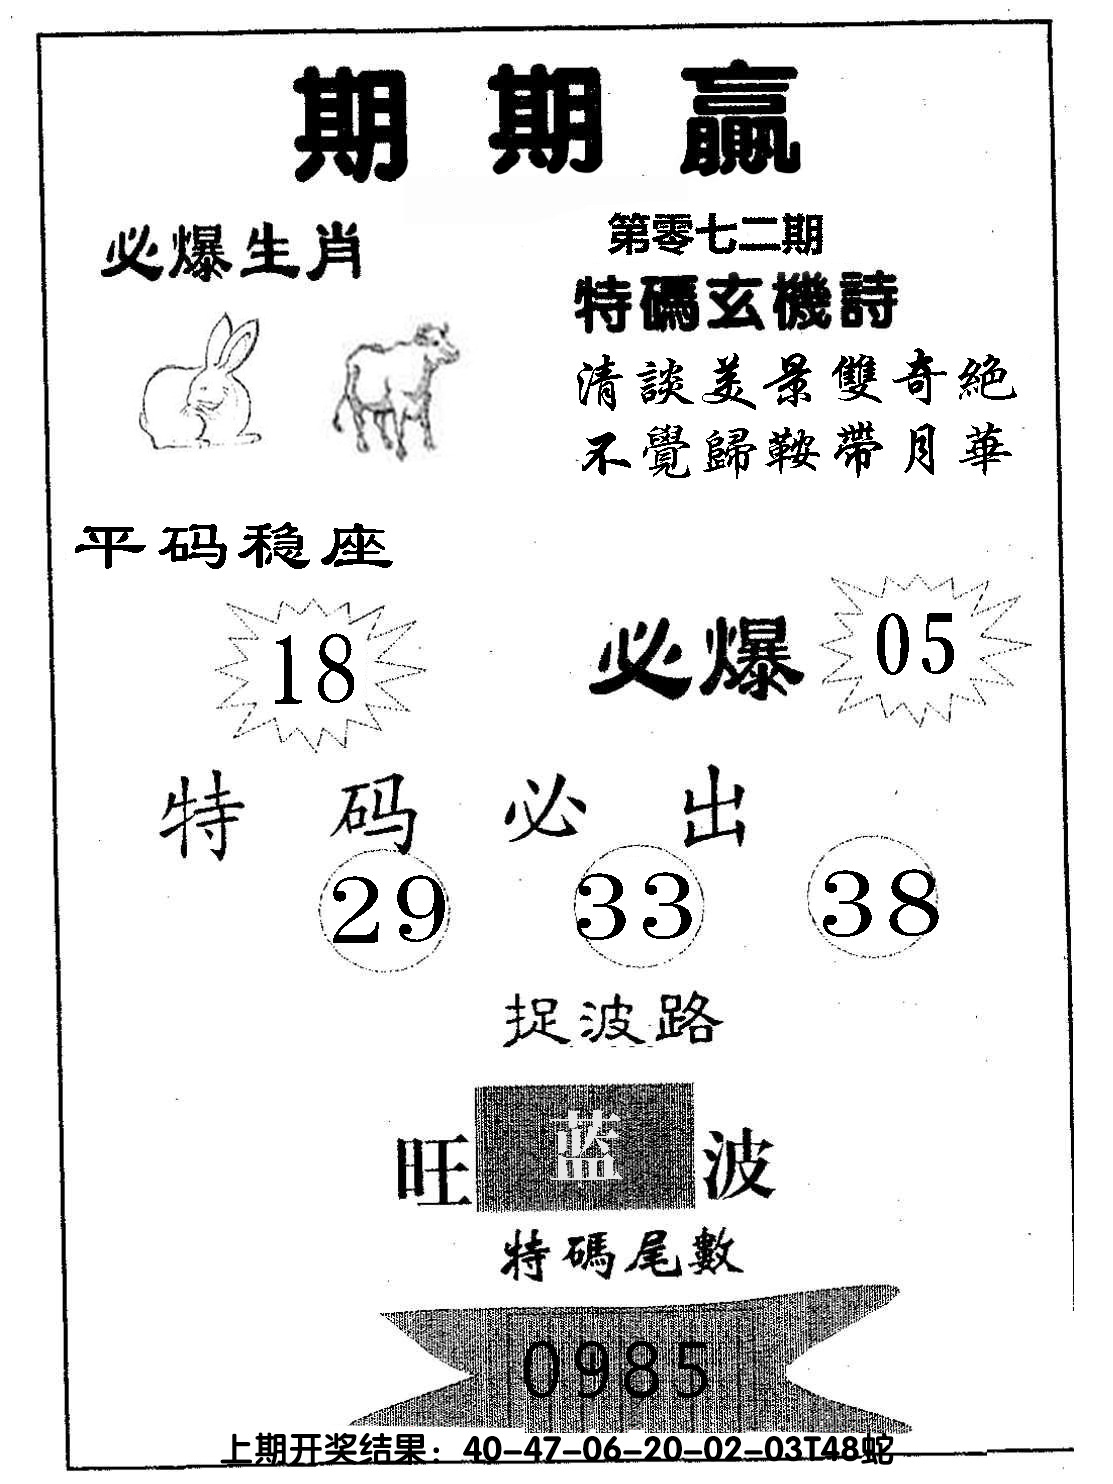 期期贏
必爆生肖
第零七二期
特碼玄機詩
清談美景雙奇絶
不覺歸鞍帶月華
平码稳座
18
必爆 05
特码必出
29 33 38
捉波路
旺 蓝 波
特碼尾數
0985
上期开奖结果：40-47-06-20-02-03T48蛇